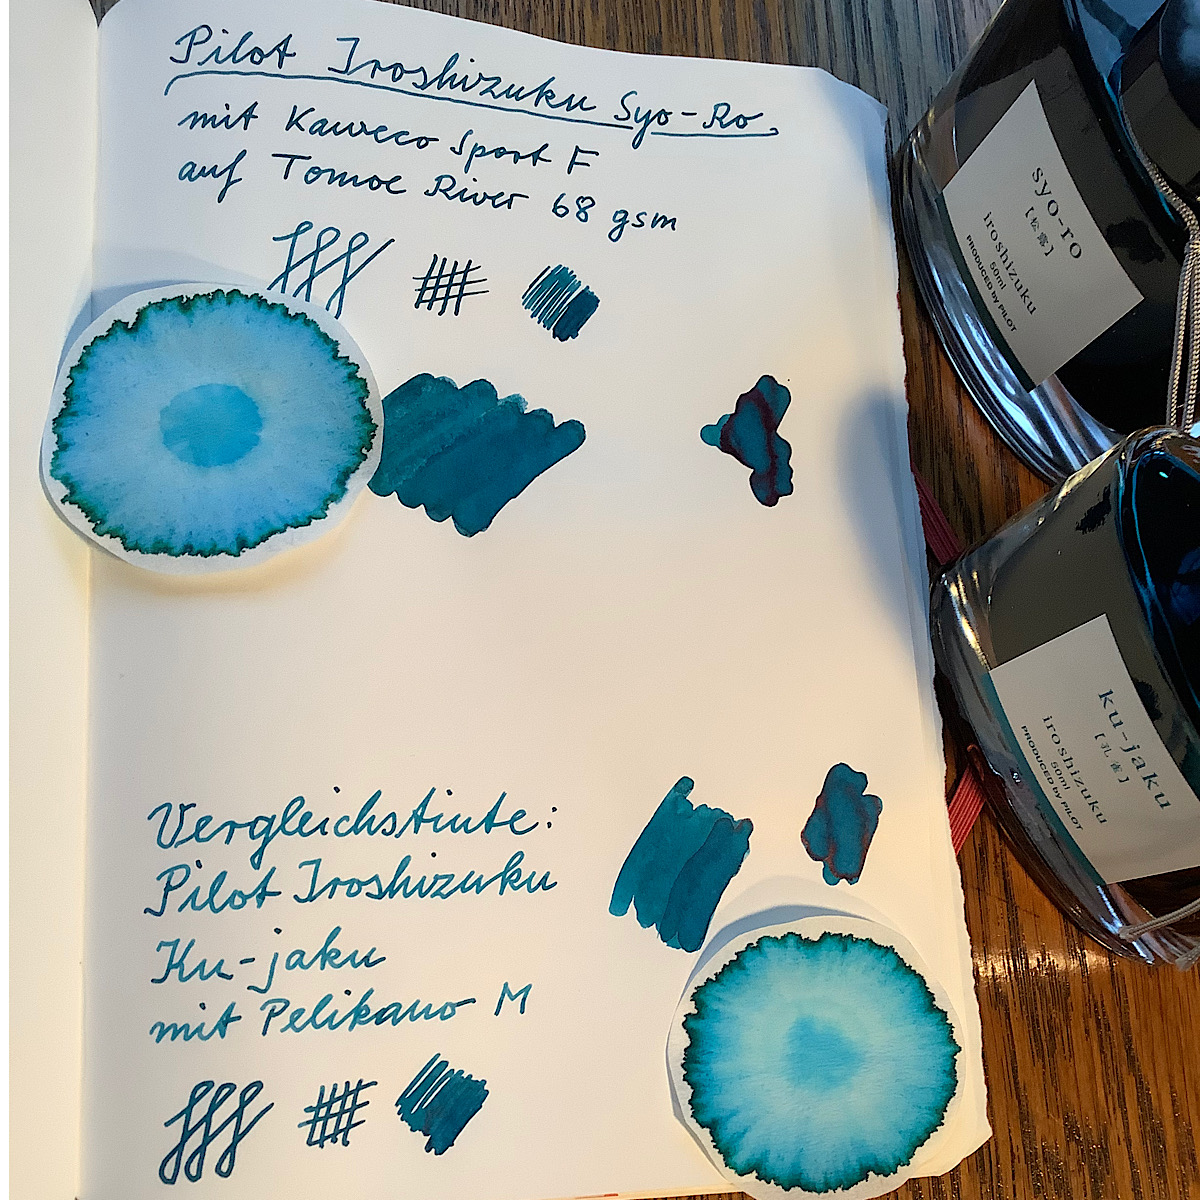 Pilot Iroshizuku Syo-Ro,
mit Kaweco Sport F
auf Tomoe River 68 gsm
Vergleichstinte:
Pilot Iroshizuku
Ku-jaku
mit Pelikano M
syo-ro
[松露]
iroshizuku
50ml
PRODUCED by PILOT
ku-jaku
[孔雀]
iroshizuku
50ml
PRODUCED by PILOT